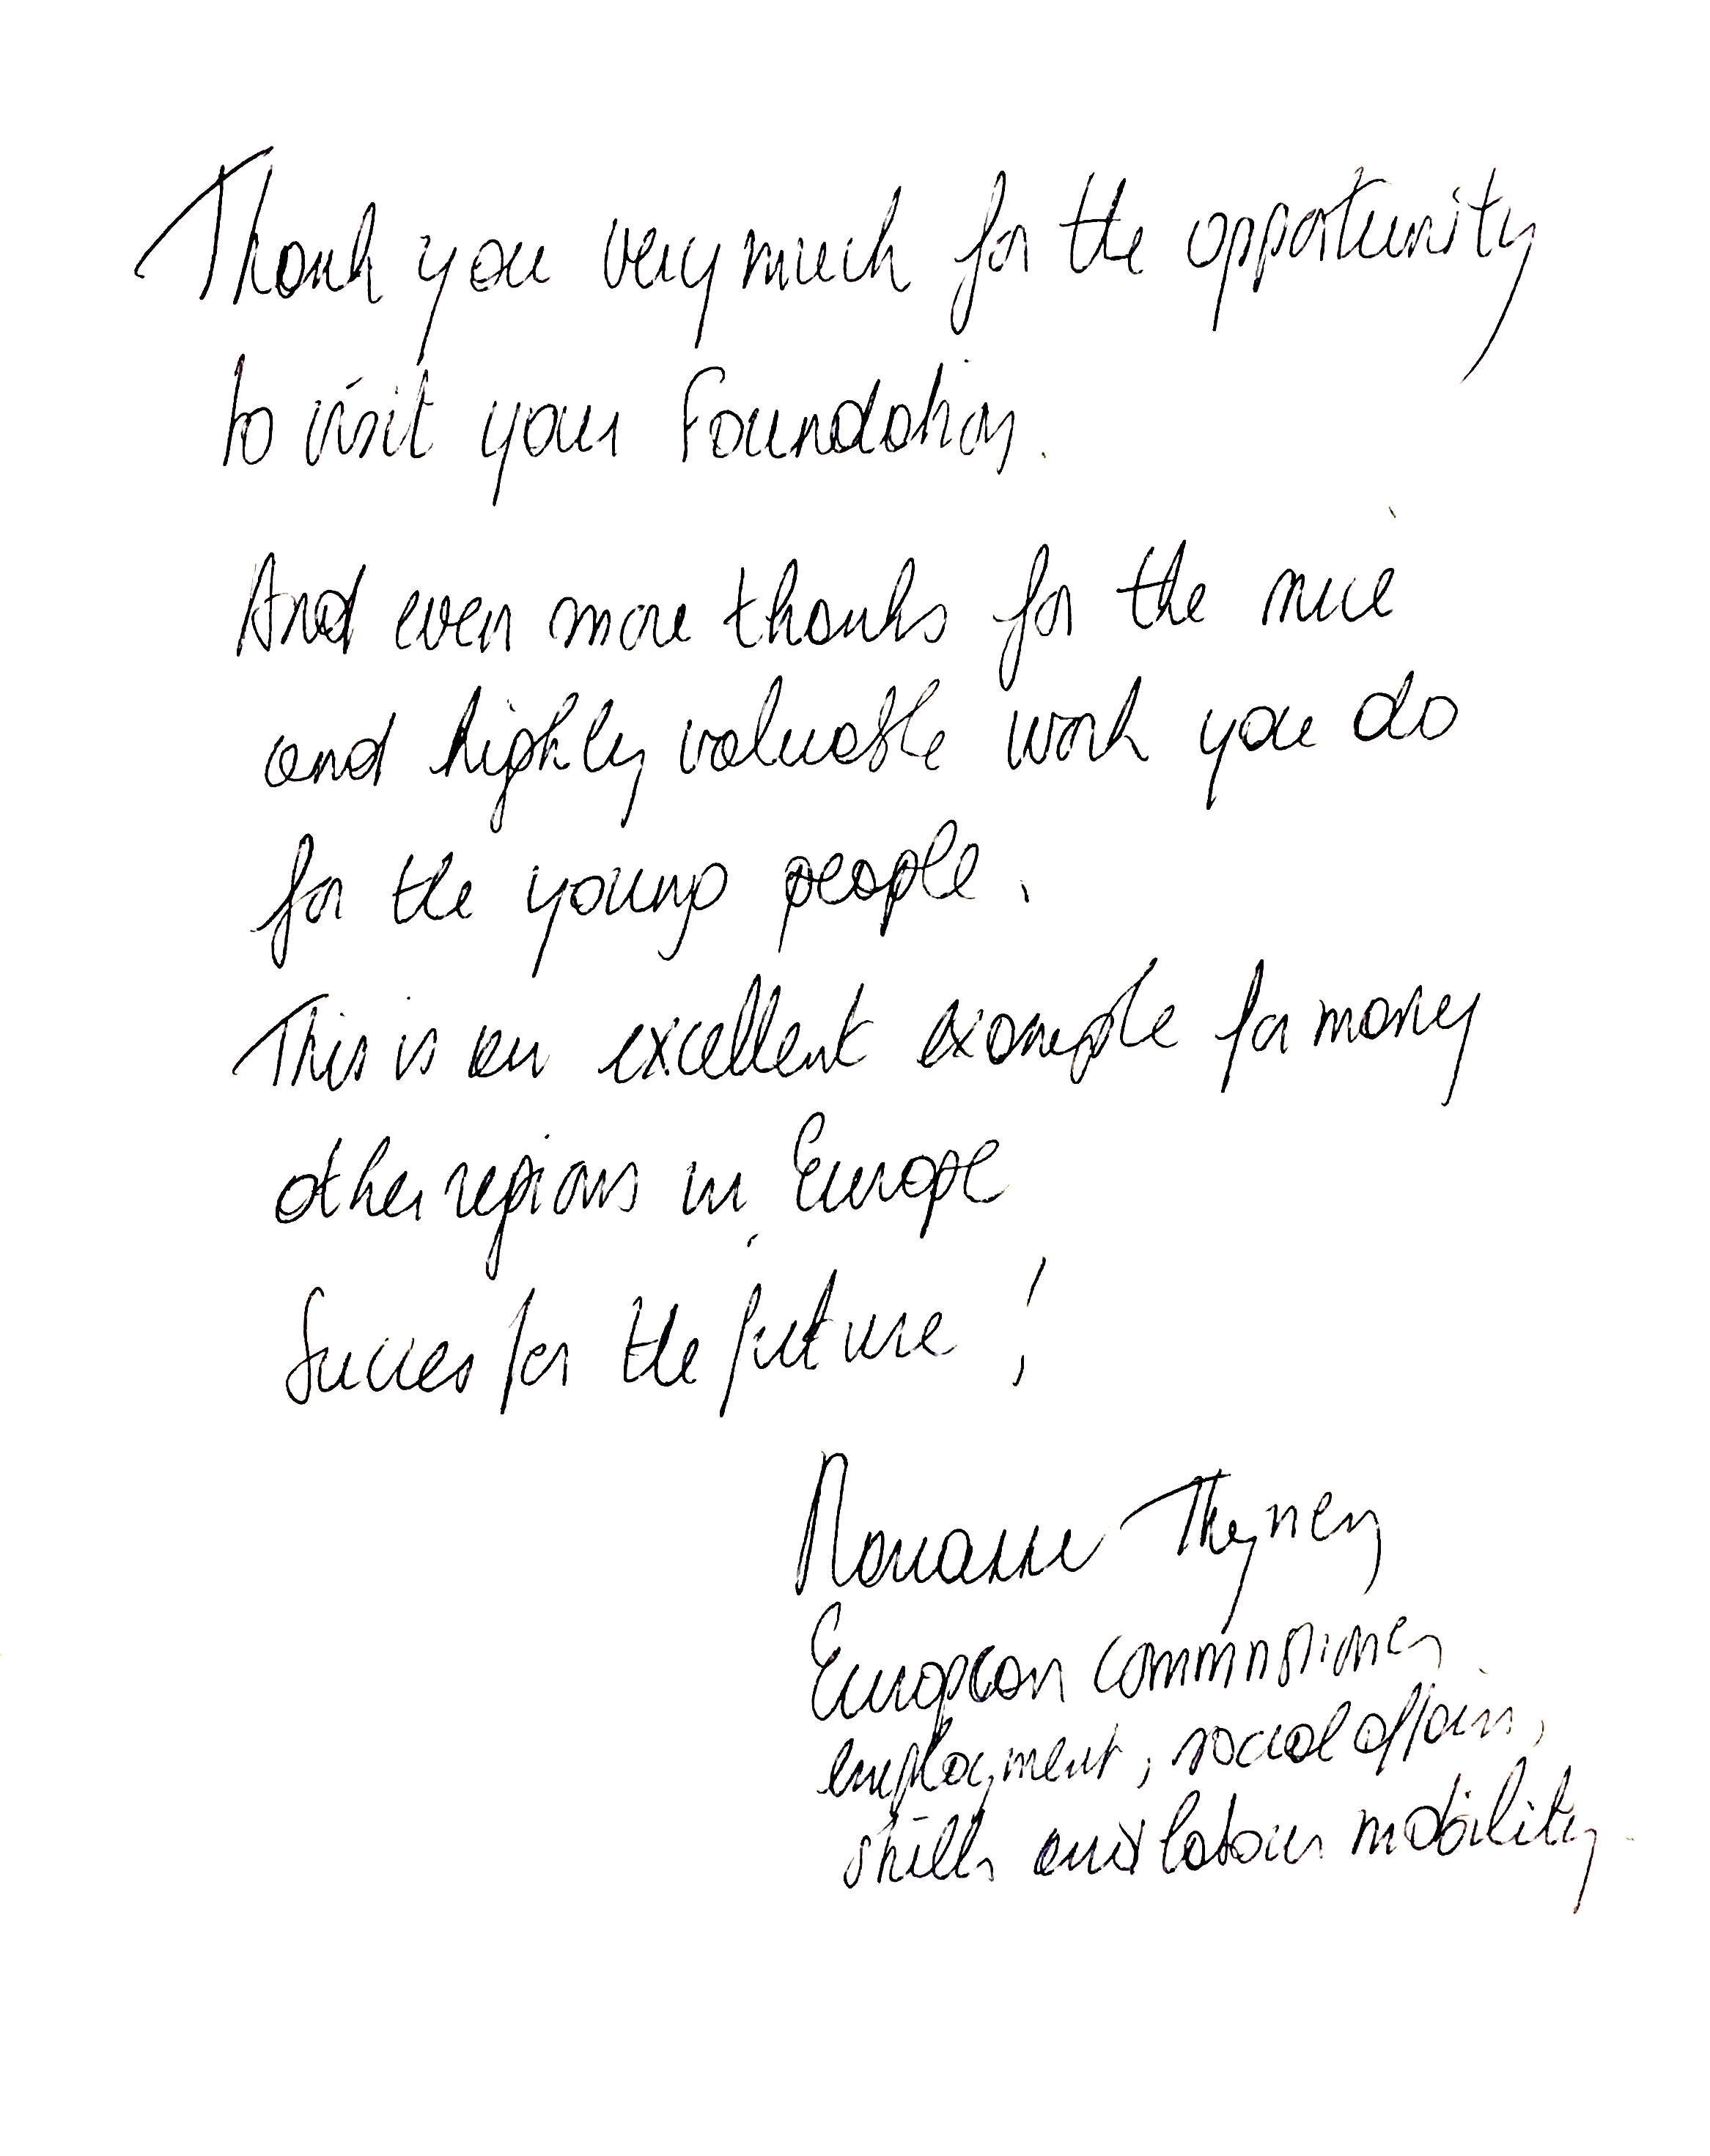 Thank you very much for the opportunity
to visit your Foundation.
And even more thanks for the nice
and highly valuable work you do
for the young people.
This is an excellent example for many
other regions in Europe
Succes for the future!
Marianne Thyssen
European commissioner
employment, social affairs,
skills and labour mobility.